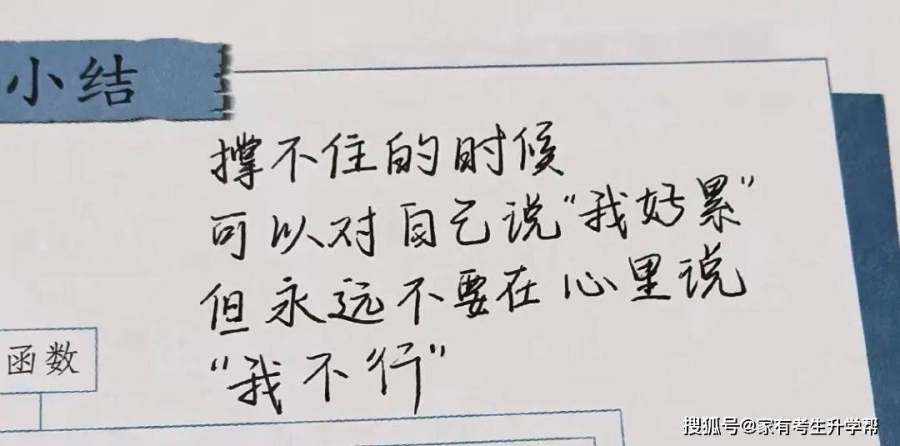 小结
撑不住的时候
可以对自己说“我好累”
但永远不要在心里说
“我不行”
函数
搜狐号@家有考生升学帮